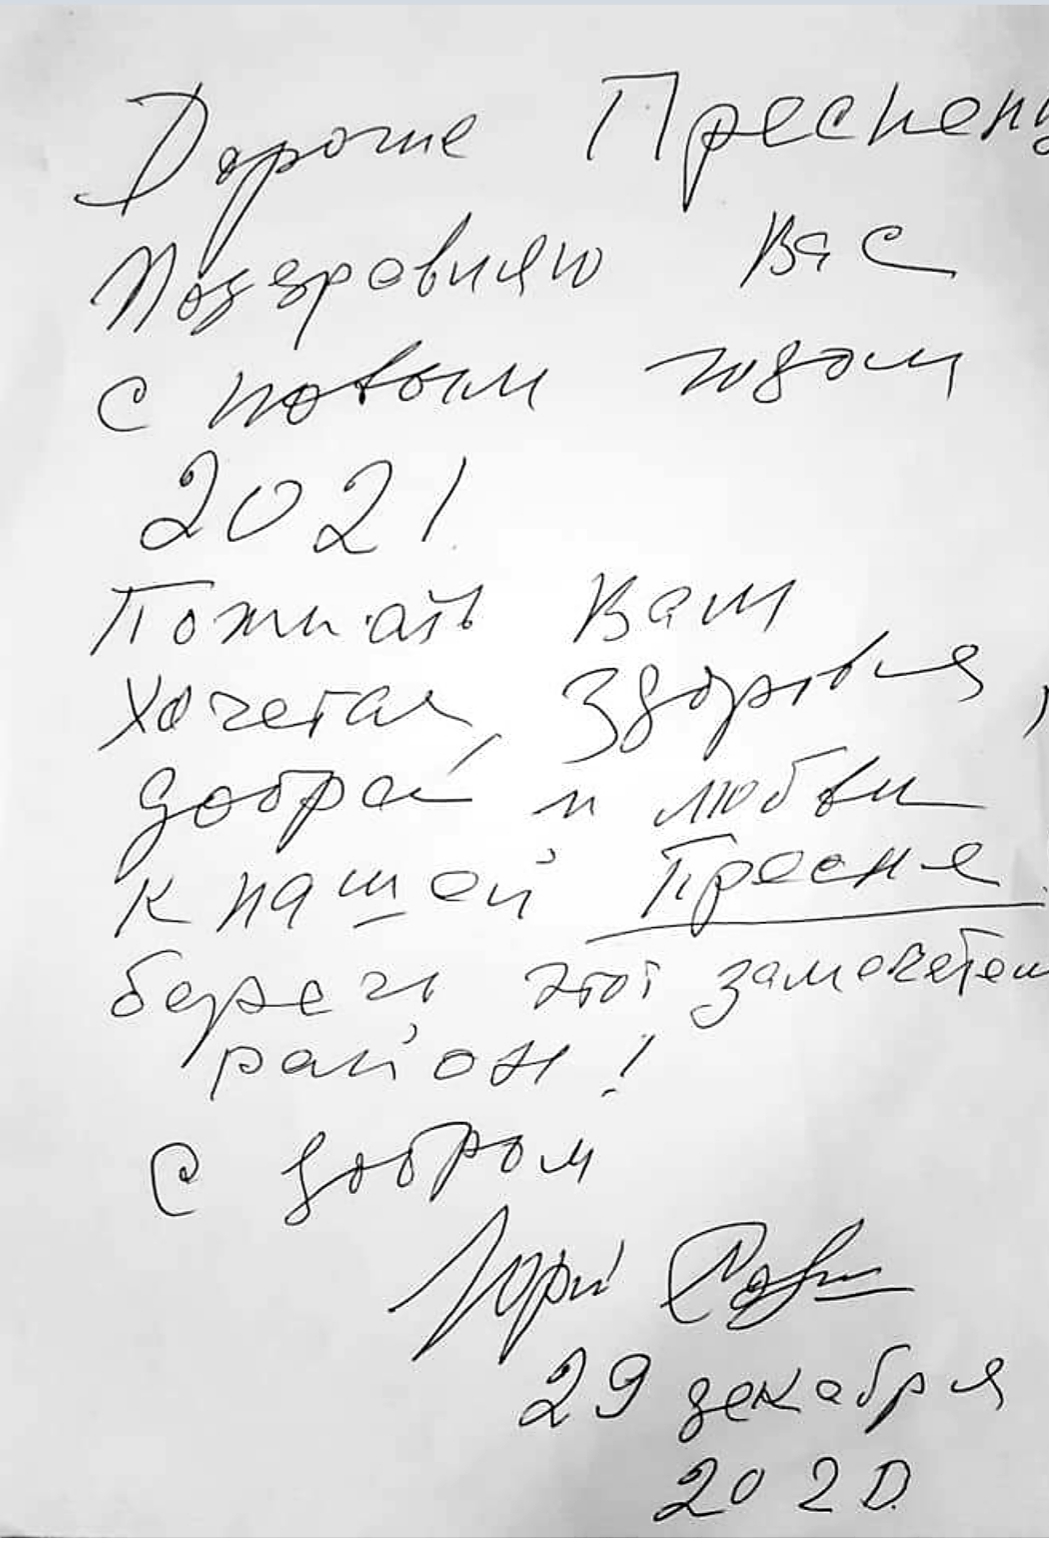 Дорогие Пресненц
Поздравляю Вас
с новым годом
2021
Пожелать Вам
хочется, здоровья,
добра и любви
к нашей Пресне.
беречь этот замечател
район!
С добром
Юрий
29 декабря
2020